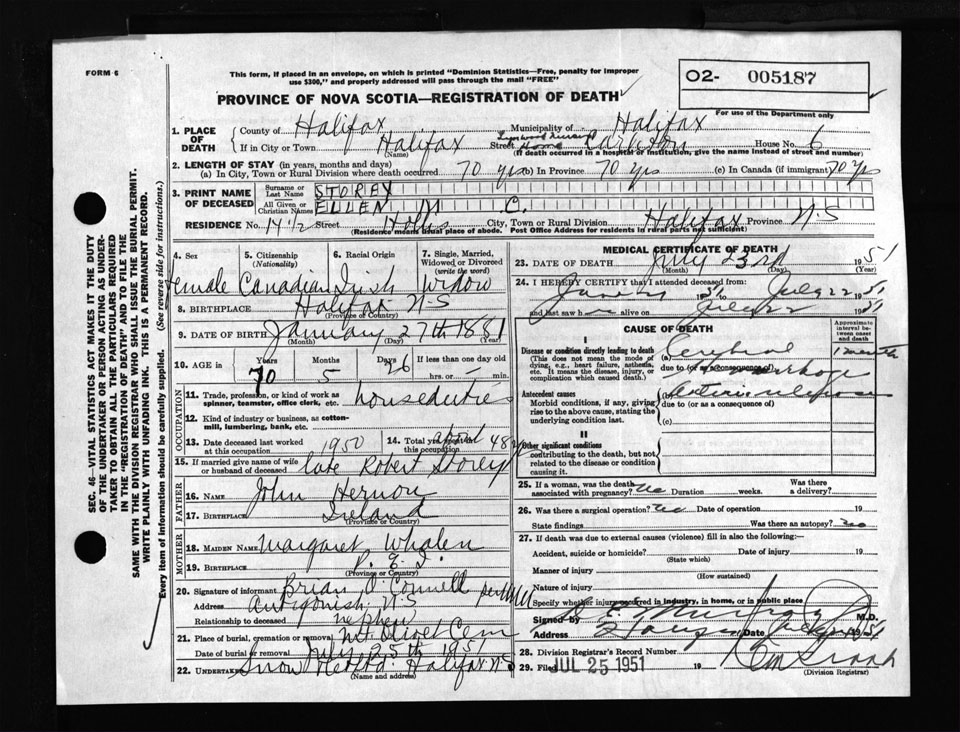 FORM 6
This form, if placed in an envelope, on which is printed "Dominion Statistics—Free, penalty for improper
use $300," and properly addressed will pass through the mail "FREE"
02- 005187
For use of the Department only
PROVINCE OF NOVA SCOTIA—REGISTRATION OF DEATH
1. PLACE OF DEATH County of Halifax Municipality of Halifax
If in City or Town Halifax (Name) Street Home Carleton House No. 6
(If death occurred in a hospital or institution, give the name instead of street and number)
2. LENGTH OF STAY (in years, months and days)
(a) In City, Town or Rural Division where death occurred 70 yrs (b) In Province 70 yrs (c) In Canada (if immigrant) 70 yrs
3. PRINT NAME OF DECEASED Surname or Last Name STOREY
All Given or Christian Names ELLEN M C.
RESIDENCE No. 14 1/2 Street Hollis City, Town or Rural Division Halifax Province N.S
(Residence means usual place of abode. Post Office Address for residents in rural parts not sufficient)
4. Sex 5. Citizenship (Nationality) 6. Racial Origin 7. Single, Married, Widowed or Divorced (write the word)
female Canadian Irish Widow
8. BIRTHPLACE Halifax N-S
(Province or Country)
9. DATE OF BIRTH January 27th 1881
(Month) (Day) (Year)
10. AGE in Years Months Days If less than one day old
70 5 26 hrs. or min.
OCCUPATION
11. Trade, profession, or kind of work as spinner, teamster, office clerk, etc. houseduties
12. Kind of industry or business, as cotton-mill, lumbering, bank, etc.
13. Date deceased last worked at this occupation 1950 14. Total years spent in this occupation 48
15. If married give name of wife or husband of deceased late Robert Storey
FATHER
16. Name John Hernon
17. Birthplace Ireland
(Province or Country)
MOTHER
18. Maiden Name Margaret Whalen
19. Birthplace P.E.I.
(Province or Country)
20. Signature of informant Brian O'Connell
Address Antigonish N.S
Relationship to deceased nephew
21. Place of burial, cremation or removal Mt Olivet Cem
Date of burial or removal July 25th 1951
22. Undertaker Snow & Co Ltd. Halifax N.S
(Name and address)
MEDICAL CERTIFICATE OF DEATH
23. DATE OF DEATH July 23rd 1951
(Month) (Day)
24. I HEREBY CERTIFY that I attended deceased from
June 51 to July 22 51
and last saw h alive on July 22 1951
CAUSE OF DEATH
Approximate interval between onset and death
I
Disease or condition directly leading to death (a) Cerebral
(This does not mean the mode of dying, e.g., heart failure, asthenia, etc. It means the disease, injury, or complication which caused death.)
due to (or as a consequence of)
Antecedent causes
Morbid conditions, if any, giving rise to the above cause, stating the underlying condition last.
(b)
due to (or as a consequence of)
(c)
II
Other significant conditions
contributing to the death, but not related to the disease or condition causing it.
25. If a woman, was the death associated with pregnancy? no Duration weeks. Was there a delivery?
26. Was there a surgical operation? no Date of operation 19
State findings Was there an autopsy? no
27. If death was due to external causes (violence) fill in also the following:—
Accident, suicide or homicide? Date of injury 19
(State which)
Manner of injury
(How sustained)
Nature of injury
Specify whether injury occurred in industry, in home, or in public place
Signed by M.D.
Address Date 1951
28. Division Registrar's Record Number
29. Filed JUL 25 1951 19
(Division Registrar)
SEC. 46—VITAL STATISTICS ACT MAKES IT THE DUTY
OF THE UNDERTAKER OR PERSON ACTING AS UNDER-
TAKER TO OBTAIN ALL THE PARTICULARS REQUIRED
IN THE "REGISTRATION OF DEATH" AND TO FILE THE
SAME WITH THE DIVISION REGISTRAR WHO SHALL ISSUE THE BURIAL PERMIT.
WRITE PLAINLY WITH UNFADING INK. THIS IS A PERMANENT RECORD.
Every item of information should be carefully supplied. (See reverse side for instructions.)